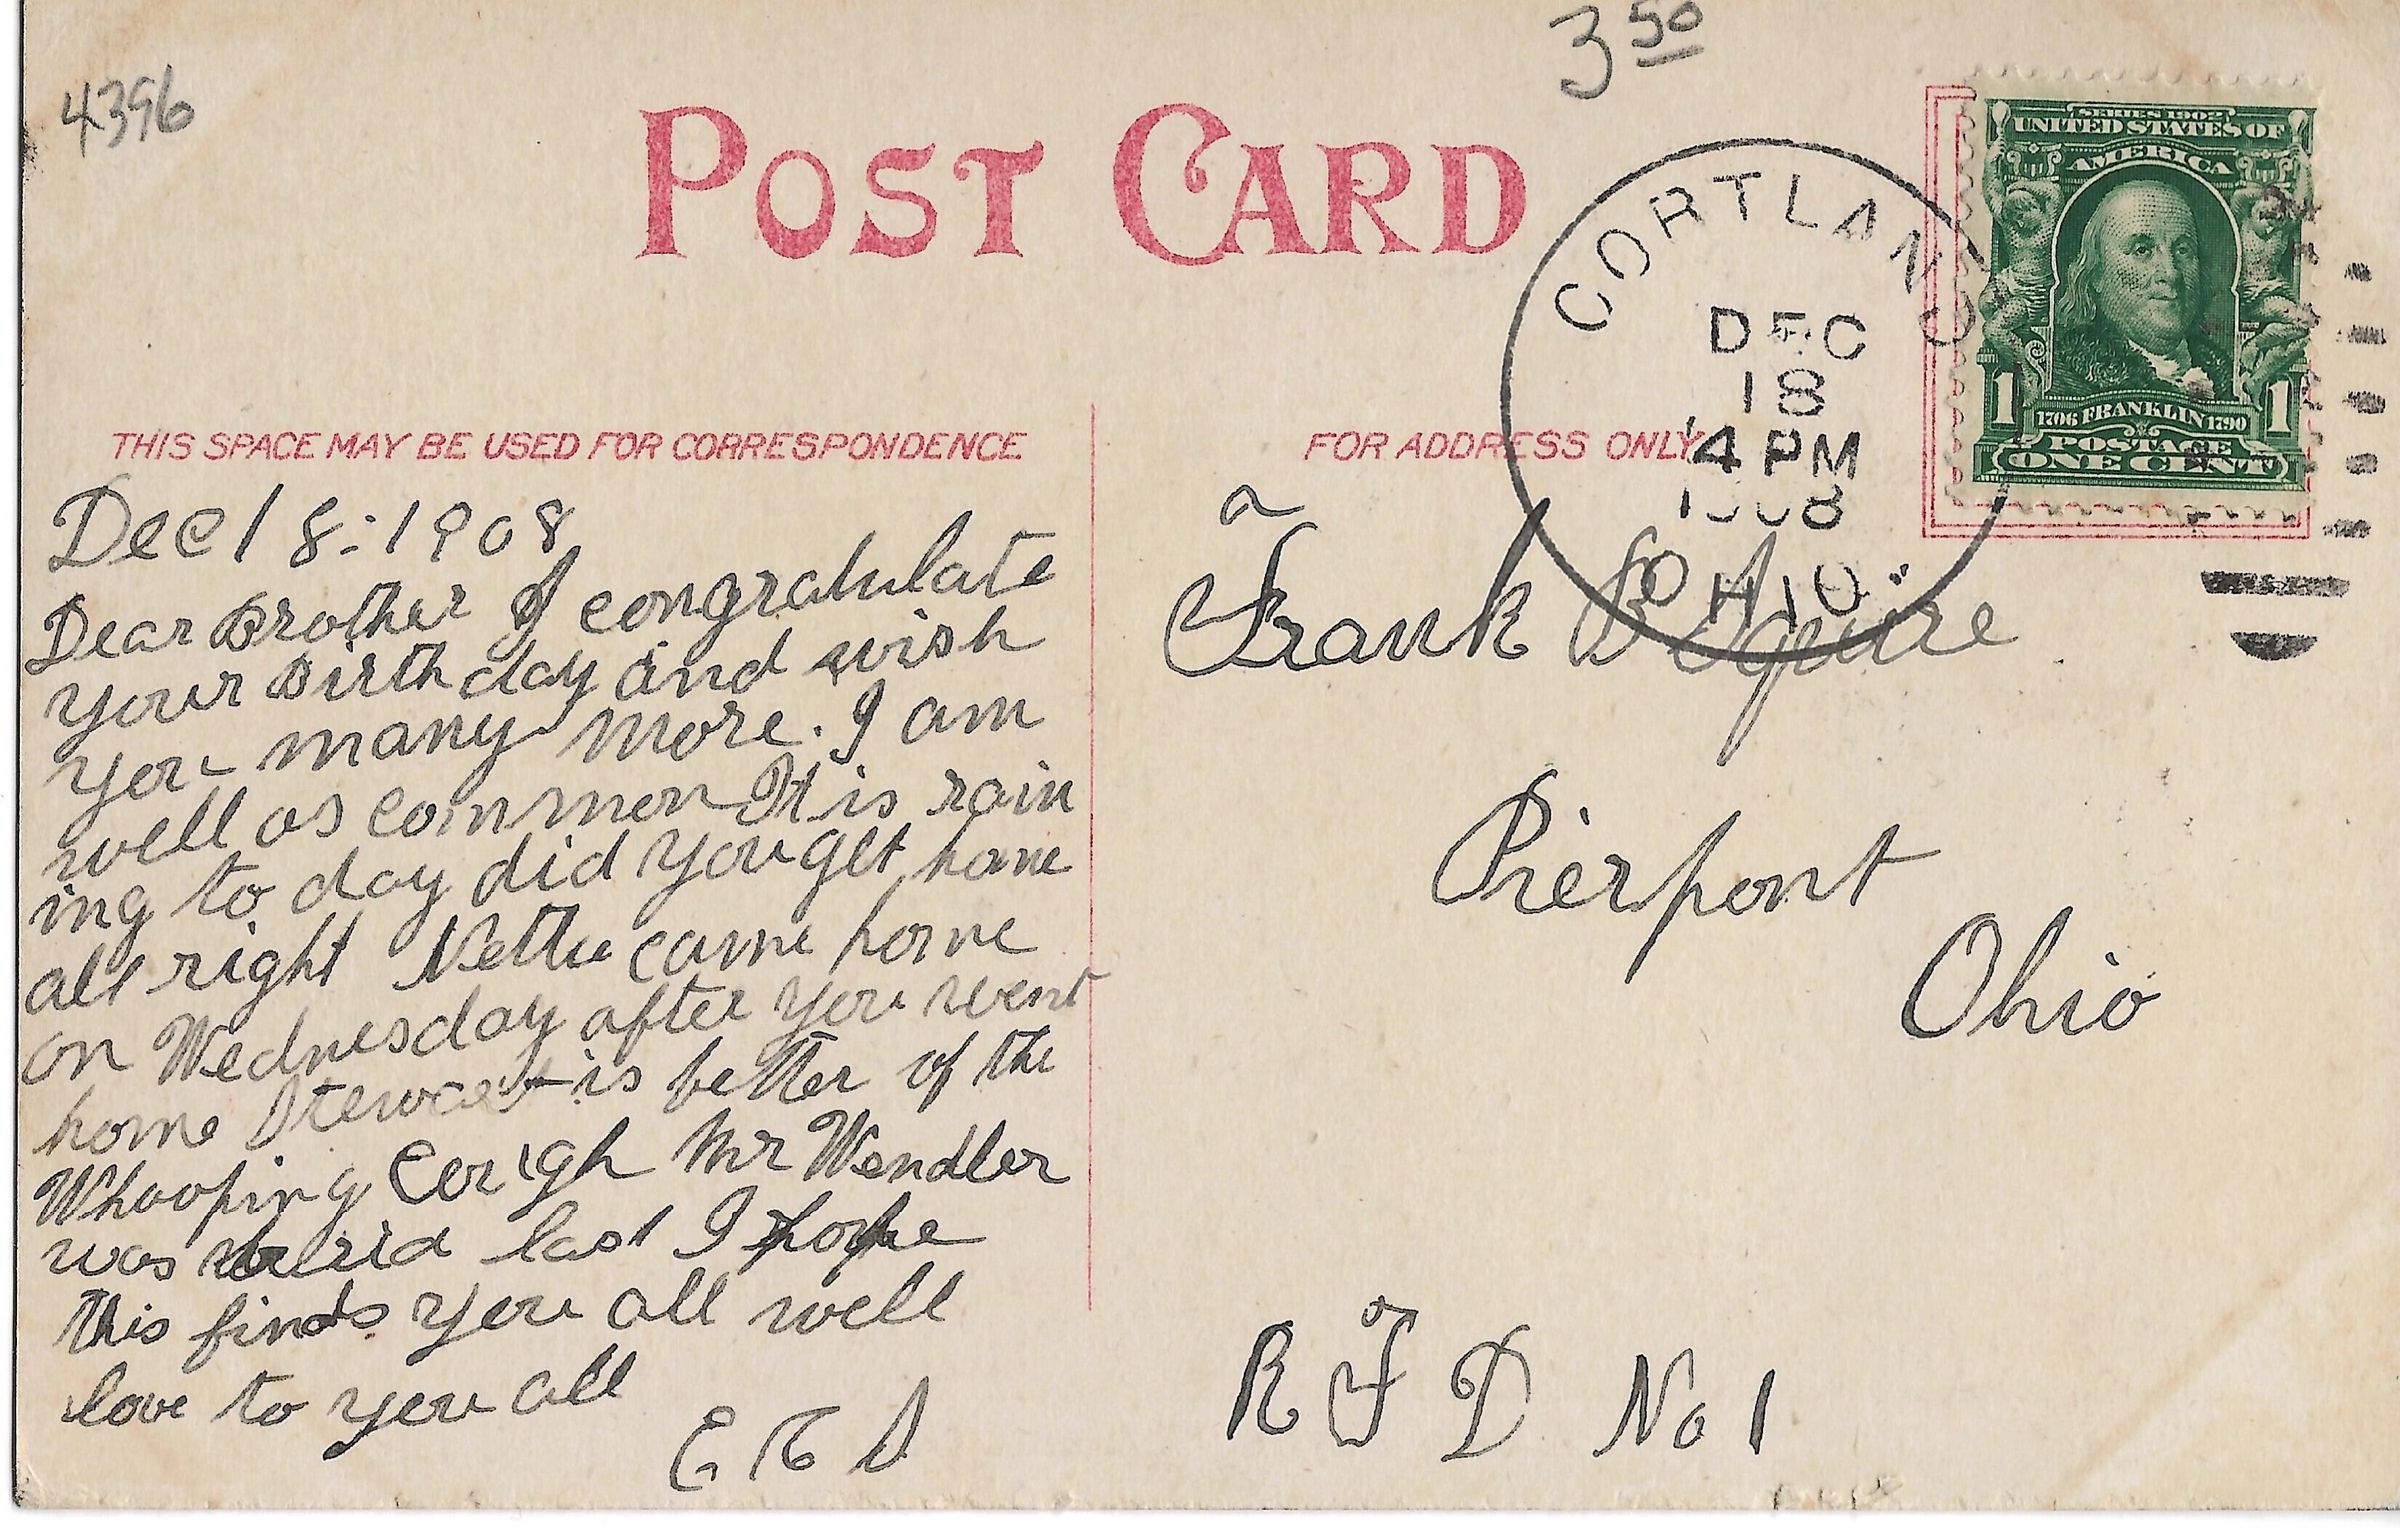 4396
3 50
POST CARD
SERIES 1902
UNITED STATES OF
AMERICA
1 1706 FRANKLIN 1790 1
POSTAGE
ONE CENT
CORTLAND
DEC
18
4 PM
1908
OHIO
THIS SPACE MAY BE USED FOR CORRESPONDENCE
Dec 18:1908
Dear Brother I congratulate
your Birth day and wish
you many more. I am
well as common It is rain
ing to day did you get home
all right Nettie came home
on Wednesday after you went
home Stewart is better of the
Whooping Cough Mr Wendler
was last I hope
this finds you all well
love to you all
E R S
FOR ADDRESS ONLY
Frank B Squire
Pierpont
Ohio
R F D No 1